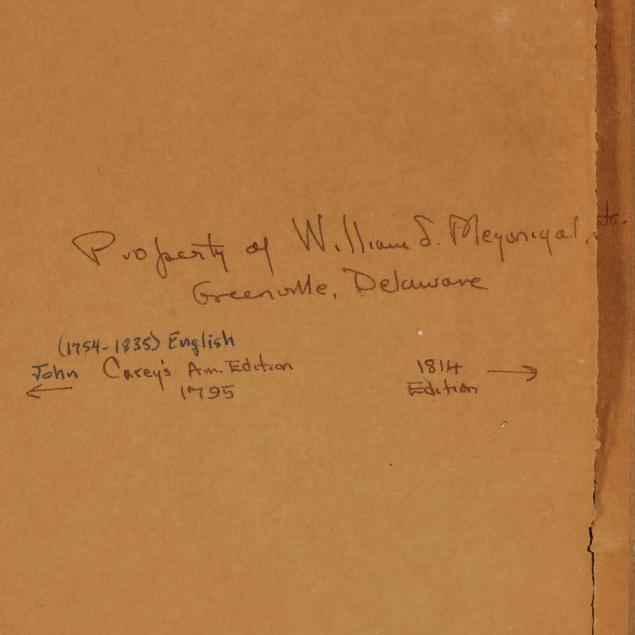 Property of William S. Meyonigal, Jr.
Greenville, Delaware
(1754-1835) English
John Carey's Am. Edition
1795
←
1814 →
Edition